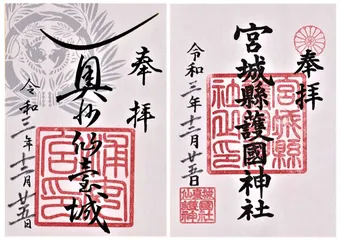 奉拝
宮城縣護國神社
令和三年十二月廿五日
宮城縣
神社
奉拝
奥州仙臺城
令和三年十二月廿五日